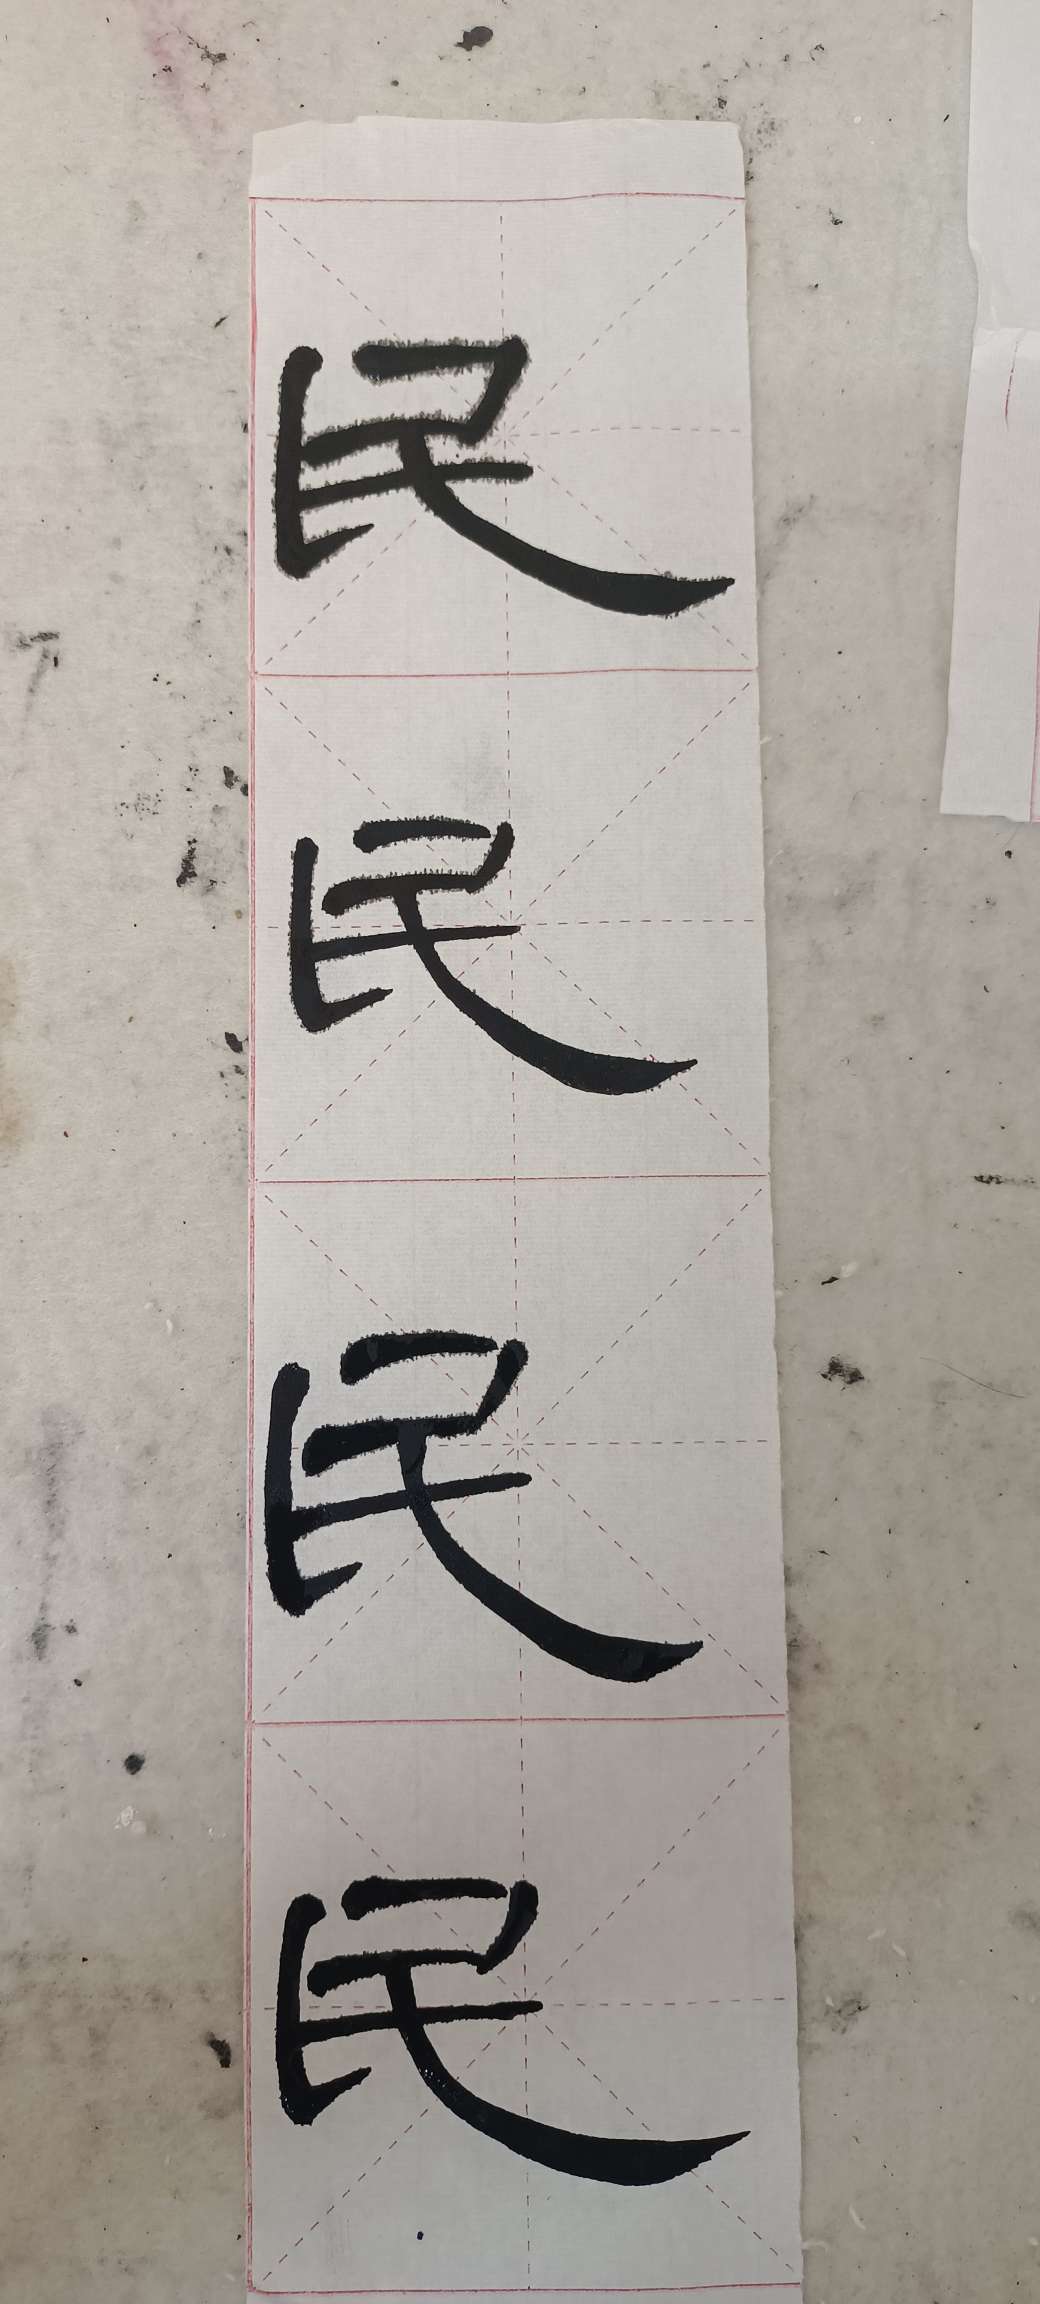 民
民
民
民